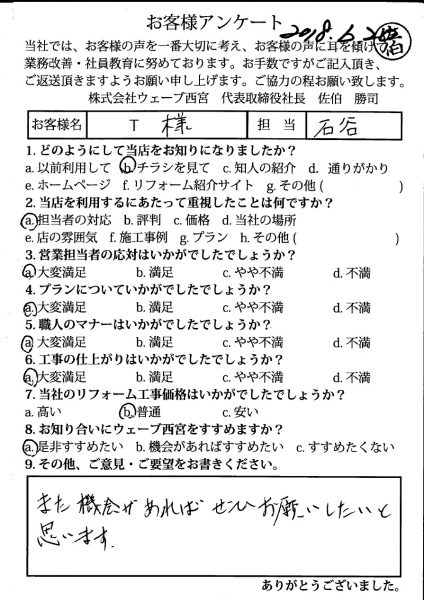 お客様アンケート 2018.6.2
当社では、お客様の声を一番大切に考え、お客様の声に耳を傾け
業務改善・社員教育に努めております。お手数ですがご記入頂き、
ご返送頂きますようお願い申し上げます。ご協力の程お願い致します。
株式会社ウェーブ西宮 代表取締役社長 佐伯 勝司
お客様名 T 様 担当 石谷
1. どのようにして当店をお知りになりましたか?
a. 以前利用して b. チラシを見て c. 知人の紹介 d. 通りがかり
e. ホームページ f. リフォーム紹介サイト g. その他 ( )
2. 当店を利用するにあたって重視したことは何ですか?
a. 担当者の対応 b. 評判 c. 価格 d. 当社の場所
e. 店の雰囲気 f. 施工事例 g. プラン h. その他 ( )
3. 営業担当者の応対はいかがでしたでしょうか?
a. 大変満足 b. 満足 c. やや不満 d. 不満
4. プランについていかがでしたでしょうか?
a. 大変満足 b. 満足 c. やや不満 d. 不満
5. 職人のマナーはいかがでしたでしょうか?
a. 大変満足 b. 満足 c. やや不満 d. 不満
6. 工事の仕上がりはいかがでしたでしょうか?
a. 大変満足 b. 満足 c. やや不満 d. 不満
7. 当社のリフォーム工事価格はいかがでしたでしょうか?
a. 高い b. 普通 c. 安い
8. お知り合いにウェーブ西宮をすすめますか?
a. 是非すすめたい b. 機会があればすすめたい c. すすめたくない
9. その他、ご意見・ご要望をお書きください。
また機会があれば ぜひお願いしたいと
思います.
ありがとうございました。